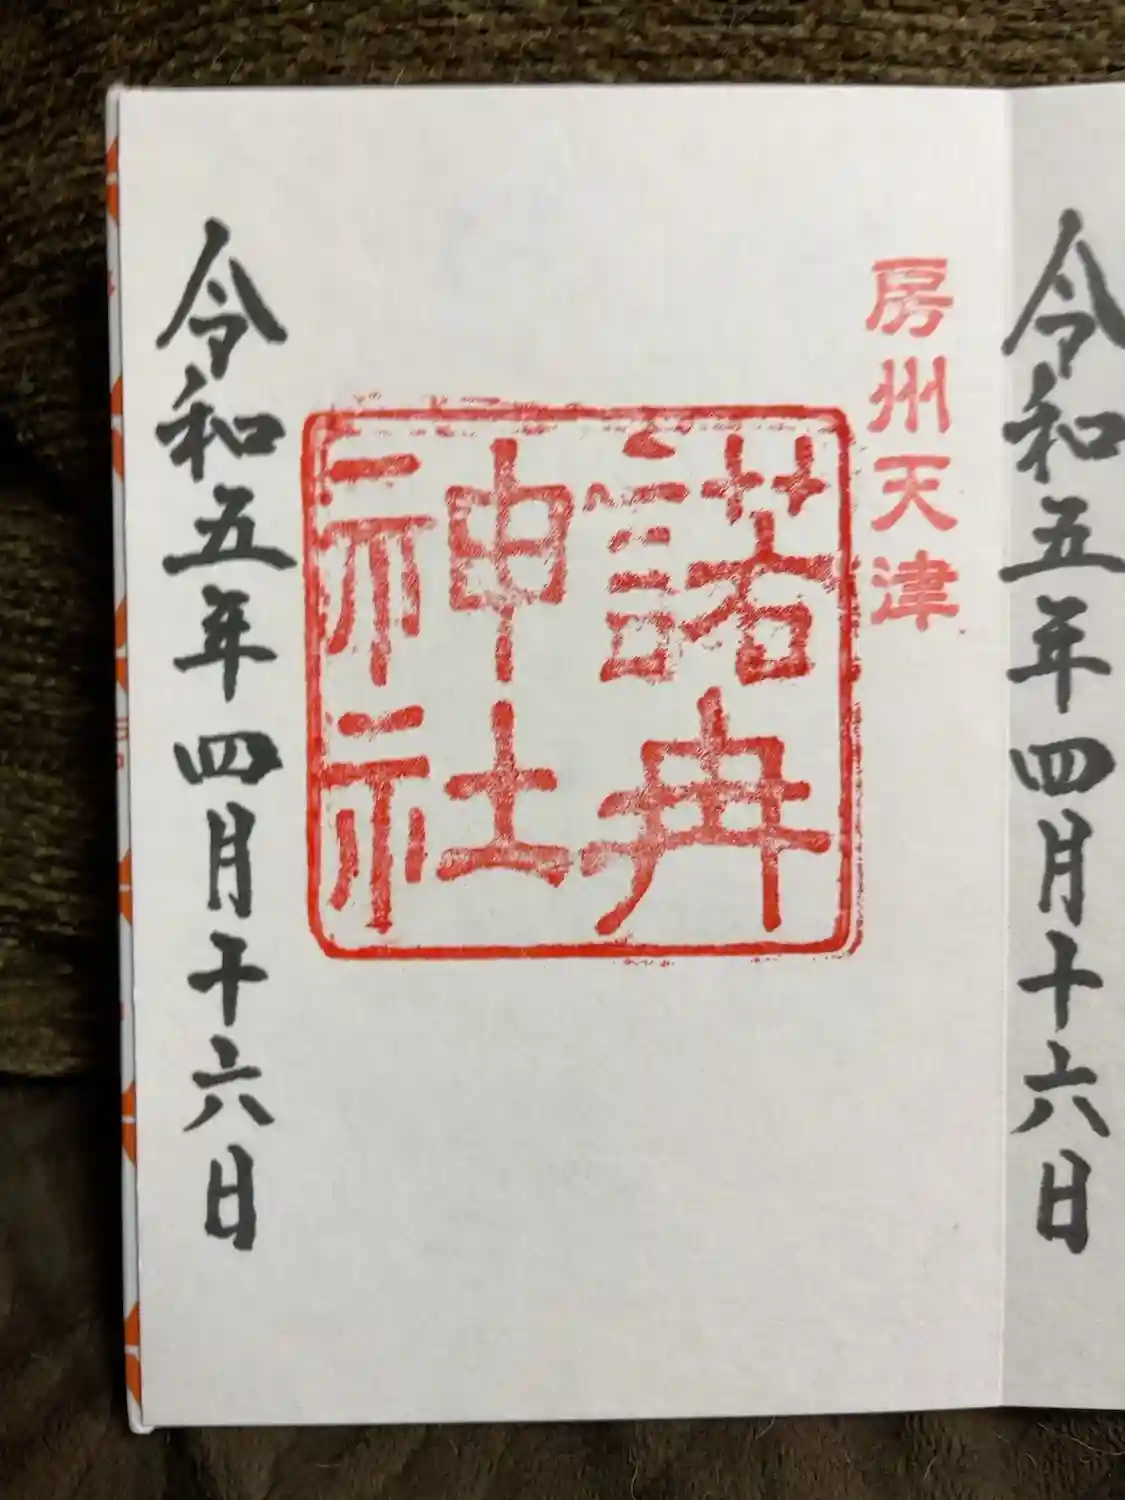 令和五年四月十六日
房州天津
諾冉
神社
令和五年四月十六日